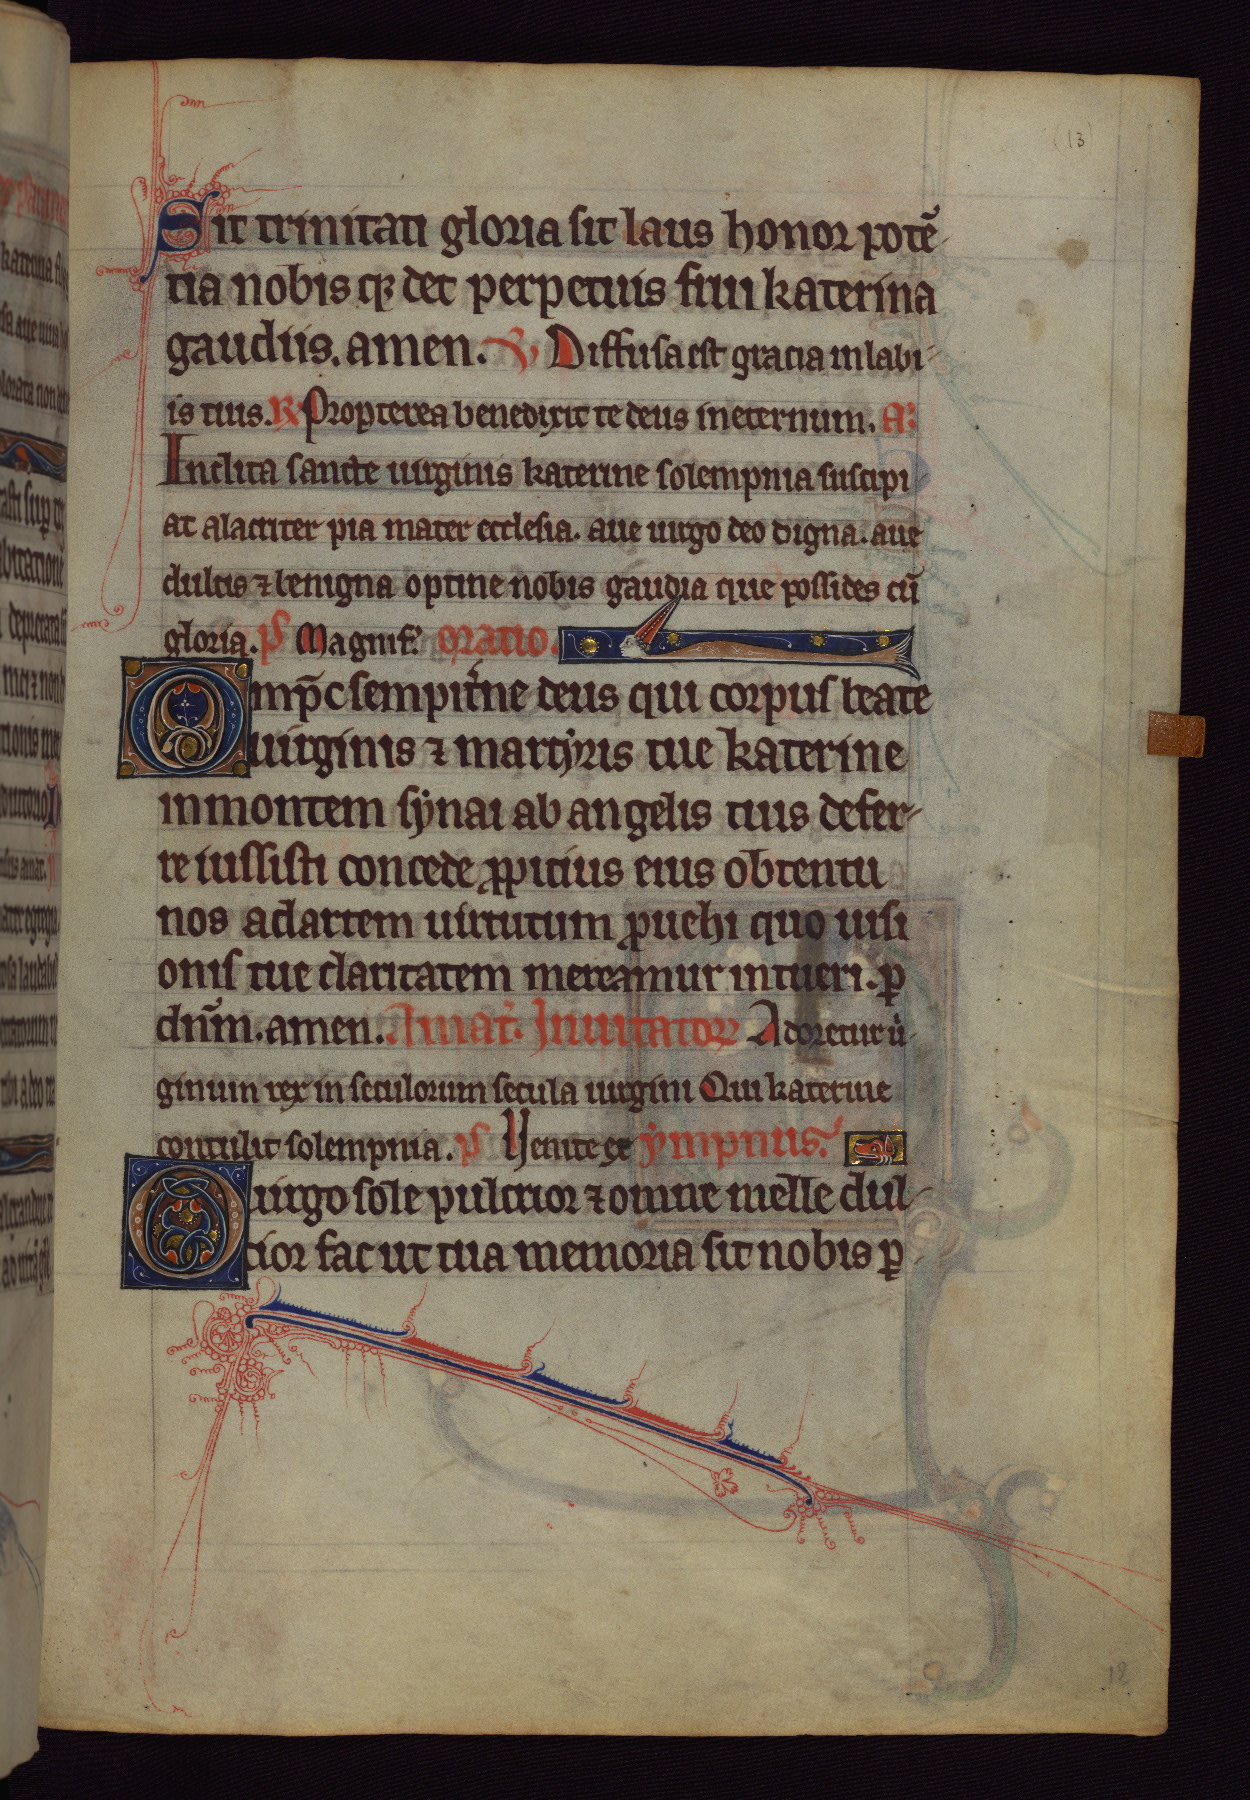 (13)
Sit trinitati gloria sit laus honor potẽ
tia nobis qꝫ det perpetuis frui katerina
gaudiis. amen. ℣ Diffusa est gracia in labi
is tuis. ℟ Propterea benedixit te deus in eternum. A᷎.
Inclita sancte uirginis katerine solempnia suscipi
at alacriter pia mater ecclesia. aue uirgo deo digna. aue
dulcis ⁊ benigna optine nobis gaudia que possides cũ
gloria. ps Magnif̕. oratio.
Omp̃c sempit̉ne deus qui corpus beate
uirginis ⁊ martẏris tue katerine
in montem sẏnai ab angelis tuis defer
re iussisti concede ꝓpicius eius obtentu
nos ad artem uirtutum ꝓuehi quo uisi
onis tue claritatem mereamur intueri. ꝑ
dñm. amen. A mat̉. Inuitatorꝝ Adoretur ũ
ginum rex in seculorum secula uirgini Qui katerine
contulit solempnia. ps Venite ex ẏmpnus.
O uirgo sole pulcrior ⁊ omne melle dul
cior fac ut tua memoria sit nobis ꝑ
12